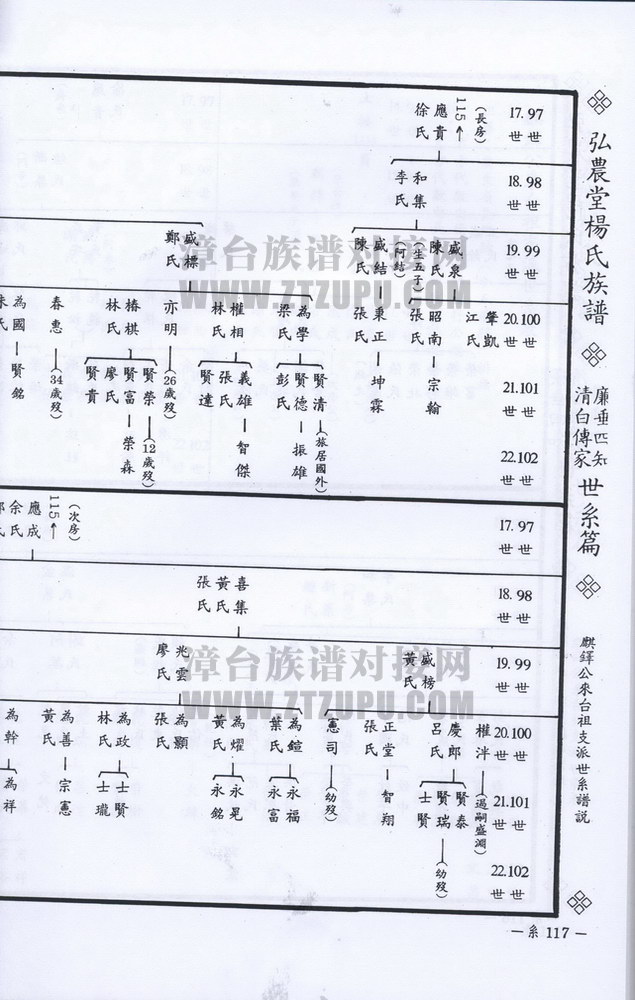 弘農堂楊氏族譜
廉垂四知
清白傳家
世系篇
麒鐸公來台祖支派世系譜説
17.97
世 世
18.98
世 世
19.99
世 世
20.100
世 世
21.101
世 世
22.102
世 世
(長房)
115←
應貴
徐氏
和集
李氏
盛泉
陳氏
(生五子)
盛結
(阿結)
陳氏
盛標
鄭氏
肇凱
江氏
昭南
張氏
宗翰
秉正
張氏
坤霖
為學
梁氏
賢清
(旅居國外)
賢德
彭氏
振雄
權相
林氏
義雄
張氏
智傑
賢達
亦明
(26歲歿)
椿棋
林氏
賢榮
(12歲歿)
賢富
廖氏
榮森
賢貴
春惠
(34歲歿)
為國
賢銘
17.97
世 世
18.98
世 世
19.99
世 世
20.100
世 世
21.101
世 世
22.102
世 世
(次房)
115←
應成
余氏
喜集
黃氏
張氏
盛榜
黃氏
兆雲
廖氏
權泮
(過嗣盛淵)
慶郎
呂氏
賢泰
賢瑞
(幼歿)
士賢
正堂
張氏
智翔
憲司
(幼歿)
為鍹
葉氏
永福
永富
為燿
黃氏
永晃
永銘
為顯
張氏
為政
林氏
士賢
士瓏
為善
黃氏
宗憲
為幹
為祥
漳台族谱对接网
WWW.ZTZUPU.COM
漳台族谱对接网
WWW.ZTZUPU.COM
—系 117—